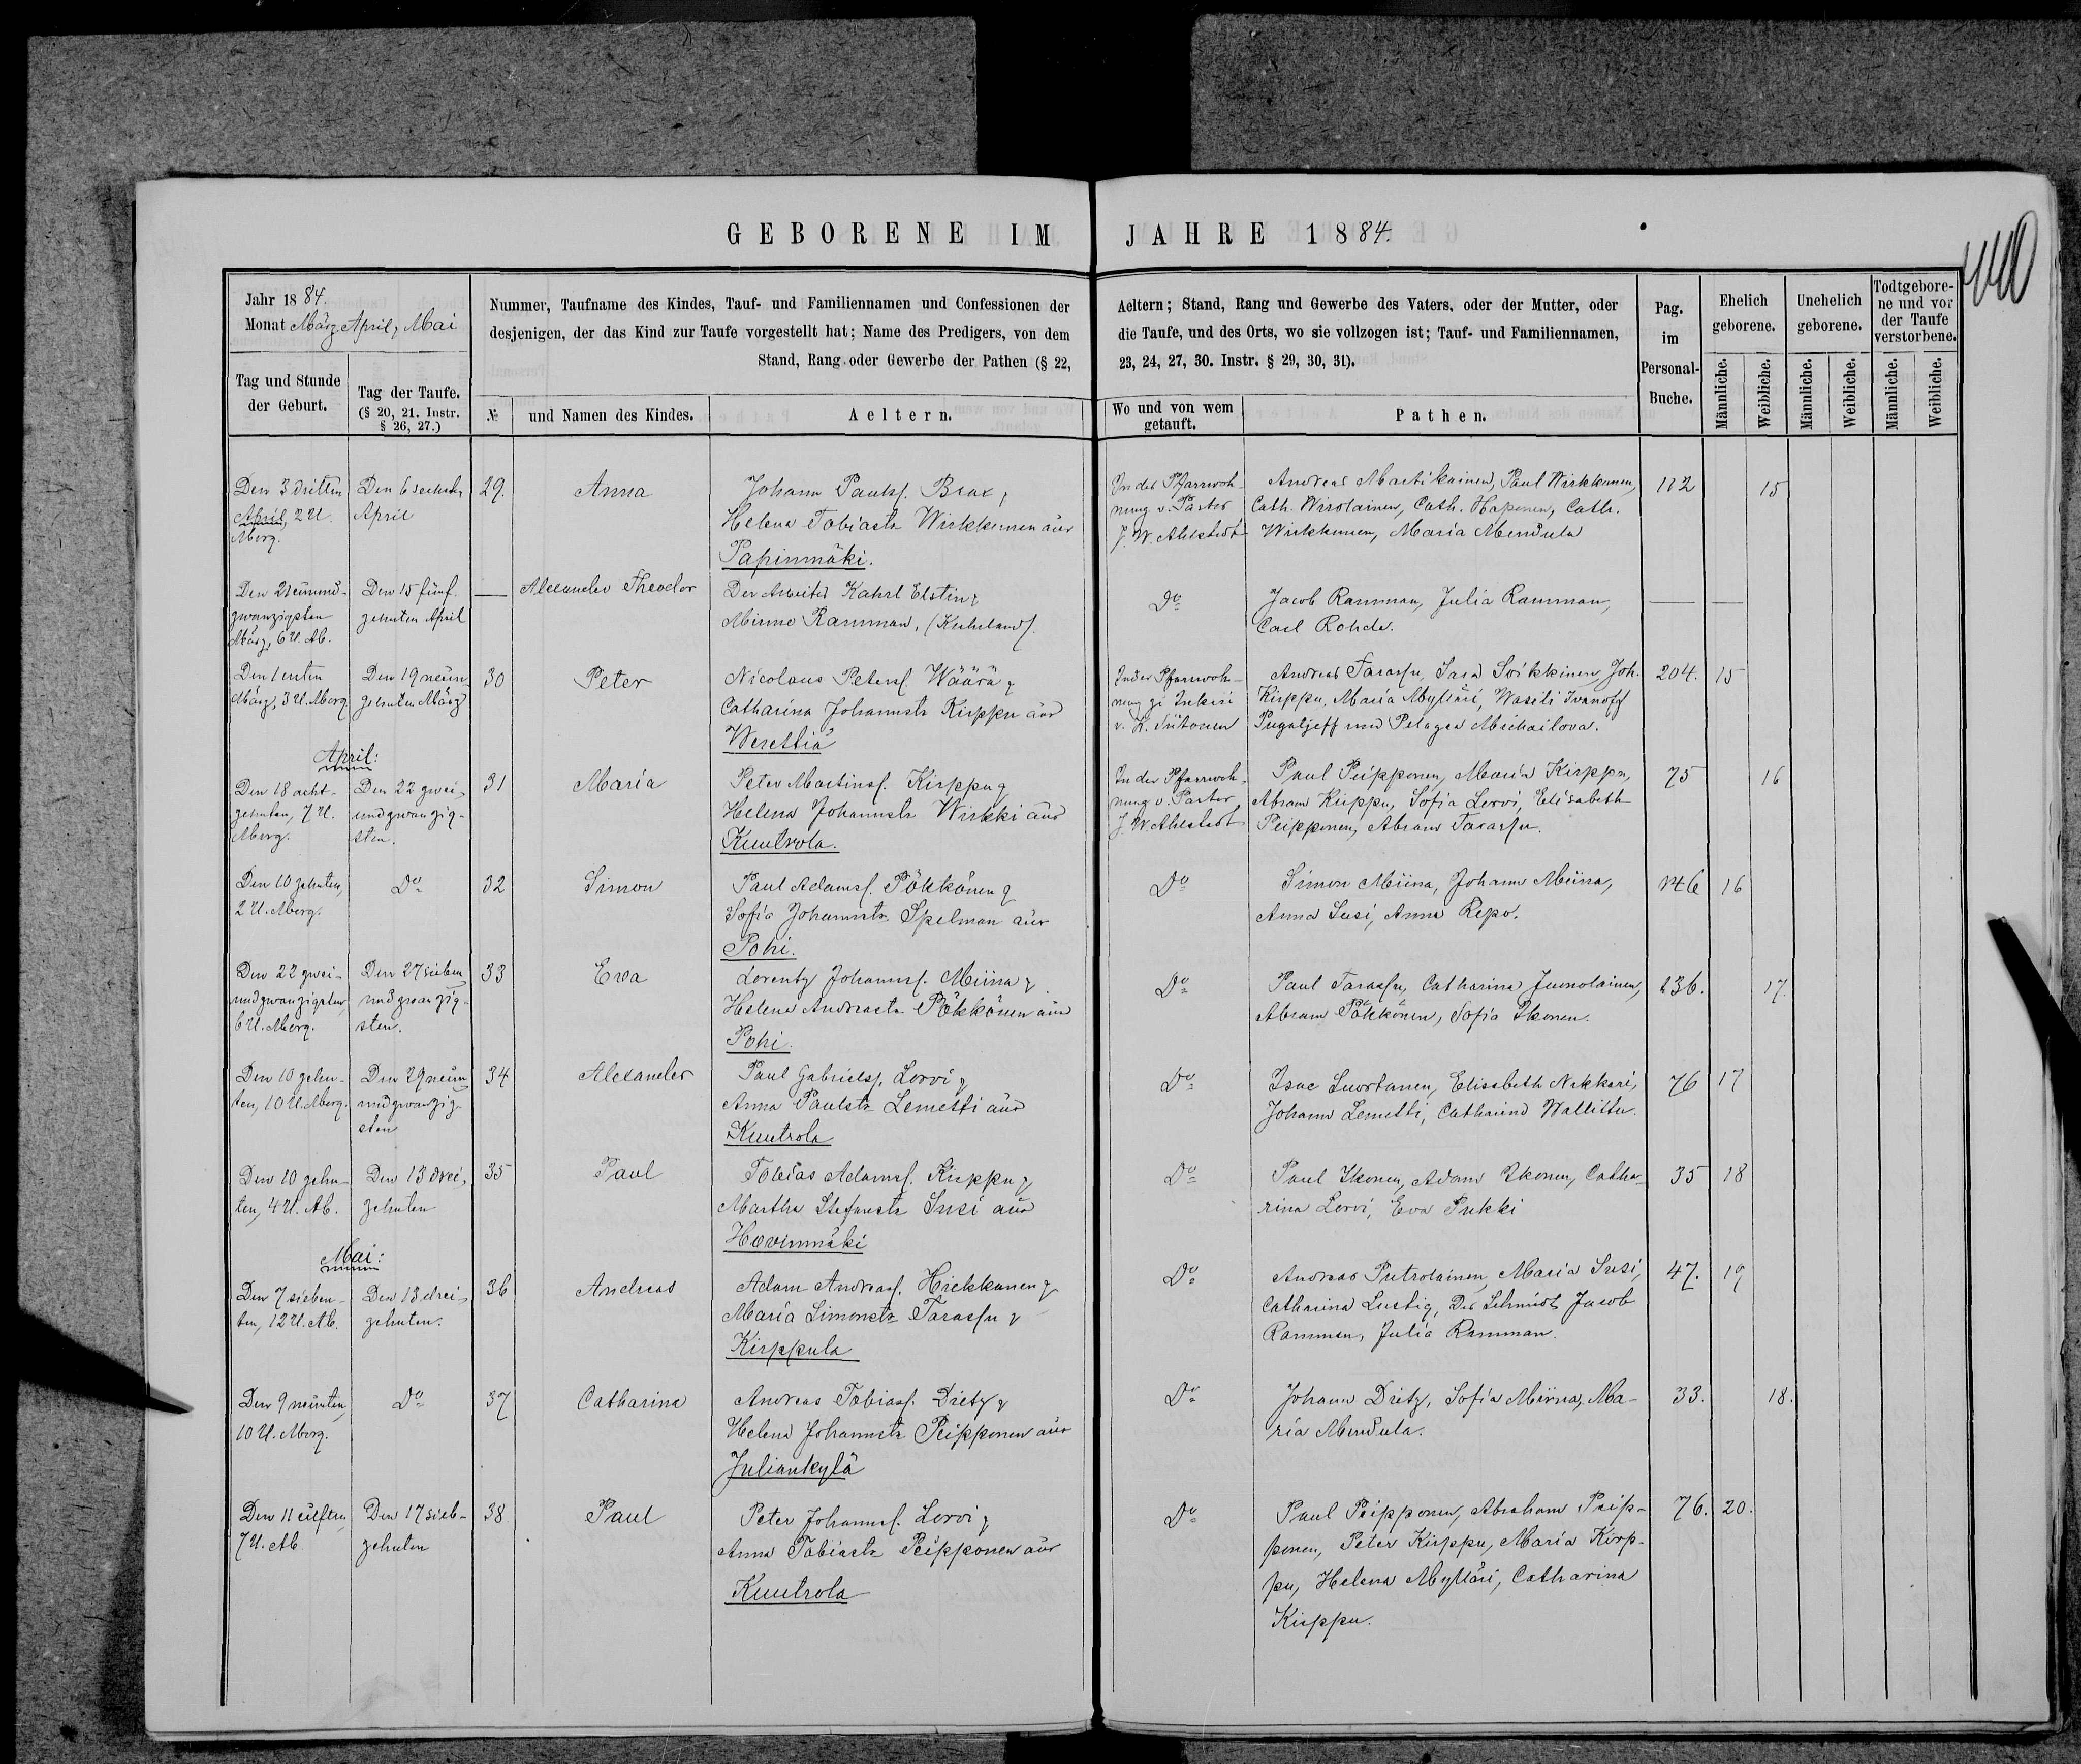 GEBORENE IM JAHRE 1884.
440
Jahr 1884.
Monat März, April, Mai
Nummer, Taufname des Kindes, Tauf- und Familiennamen und Confessionen der Aeltern; Stand, Rang und Gewerbe des Vaters, oder der Mutter, oder
desjenigen, der das Kind zur Taufe vorgestellt hat; Name des Predigers, von dem die Taufe, und des Orts, wo sie vollzogen ist; Tauf- und Familiennamen,
Stand, Rang oder Gewerbe der Pathen (§ 22, 23, 24, 27, 30. Instr. § 29, 30, 31).
Pag.
im
Personal-
Buche.
Ehelich
geborene.
Unehelich
geborene.
Todtgebore-
ne und vor
der Taufe
verstorbene.
Tag und Stunde
der Geburt.
Tag der Taufe.
(§ 20, 21. Instr.
§ 26, 27.)
№
und Namen des Kindes.
Aeltern.
Wo und von wem
getauft.
Pathen.
Männliche. Weibliche. Männliche. Weibliche. Männliche. Weibliche.
Den 3 dritten
April, 2 U.
Morg.
Den 6 sechsten
April
29.
Anna
Johann Paulss. Brax &
Helena Tobiastr Wirkkunen aus
Papinmäki.
In der Pfarrwoh-
nung v. Pastor
J. W. Ahlstedt
Andreas Martikainen, Paul Wirkkunen,
Cath. Wirolainen, Cath. Haponen, Cath.
Wirkkunen, Maria Mendula
112
15
Den 21 einund-
zwanzigsten
März, 6 U. Ab.
Den 15 fünf-
zehnten April
—
Alexander Theodor
Der Arbeiter Kahrl Elstin &
Minna Ramman, (Kuhrland).
Do
Jacob Ramman, Julia Ramman,
Carl Rohde.
— —
Den 1 ersten
März, 3 U. Morg.
Den 19 neun
zehnten März
30
Peter
Nicolaus Peterss. Wäärä &
Catharina Johannstr Kirppu aus
Wesettiä
In der Pfarrwoh-
nung zi Inkeri
v. K. Siitonen
Andreas Tarassu, Sara Soikkinen, Joh.
Kirppu, Maria Mylläri, Wasili Ivanoff
Pugatjeff und Pelagea Michailova.
204.
15
April:
Den 18 acht-
zehnten, 7 U.
Morg.
Den 22 zwei-
undzwanzig-
sten.
31
Maria
Peter Martinss. Kirppu &
Helena Johannstr Wirkki aus
Kuutrola.
In der Pfarrwoh-
nung v. Pastor
J. W. Ahlstedt
Paul Peipponen, Maria Kirppu,
Abram Kirppu, Sofia Lervi, Elisabeth
Peipponen, Abram Tarassu.
75
16
Den 10 zehnten,
2 U. Morg.
Do
32
Simon
Paul Adamss. Pökkönen &
Sofia Johannstr Spelman aus
Pohi.
Do
Simon Miina, Johann Miina,
Anna Susi, Anna Repo.
146
16
Den 22 zwei-
undzwanzigsten
6 U. Morg.
Den 27 sieben
undzwanzig-
sten.
33
Eva
Lorentz Johannss. Miina &
Helena Andreastr Pökkönen aus
Pohi.
Do
Paul Tarassu, Catharina Juunolainen,
Abram Pökkönen, Sofia Ikonen.
136.
17.
Den 10 zehn-
ten, 10 U. Morg.
Den 29 neun
undzwanzig-
sten
34
Alexander
Paul Gabrielss. Lervi &
Anna Paulstr Lemetti aus
Kuutrola
Do
Isac Suortanen, Elisabeth Nakkari,
Johann Lemetti, Catharina Wallittu.
76
17
Den 10 zehn-
ten, 4 U. Ab.
Den 13 drei-
zehnten
35
Paul
Tobias Adamss. Kirppu &
Martha Stefanstr Susi aus
Hovinmäki
Do
Paul Ikonen, Adam Ikonen, Catha-
rina Lervi, Eva Pukki
35
18
Mai:
Den 7 sieben-
ten, 12 U. Ab.
Den 13 drei-
zehnten.
36
Andreas
Adam Andreass. Hiekkanen &
Maria Simonstr Tarassu &
Kirppula
Do
Andreas Putrolainen, Maria Susi,
Catharina Lustig, Der Schmidt Jacob
Ramman, Julia Ramman.
47.
19
Den 9 neunten,
10 U. Morg.
Do
37
Catharina
Andreas Tobiass. Dietz &
Helena Johannstr Peipponen aus
Juliankylä
Do
Johann Dietz, Sofia Miina, Ma-
ria Mendula.
33.
18.
Den 11 eilften
7 U. Ab
Den 17 sieb-
zehnten
38
Paul
Peter Johannss. Lervi &
Anna Tobiastr Peipponen aus
Kuutrola
Do
Paul Peipponen, Abraham Peip-
ponen, Peter Kirppu, Maria Kirp-
pu, Helena Mylläri, Catharina
Kirppu.
76.
20.